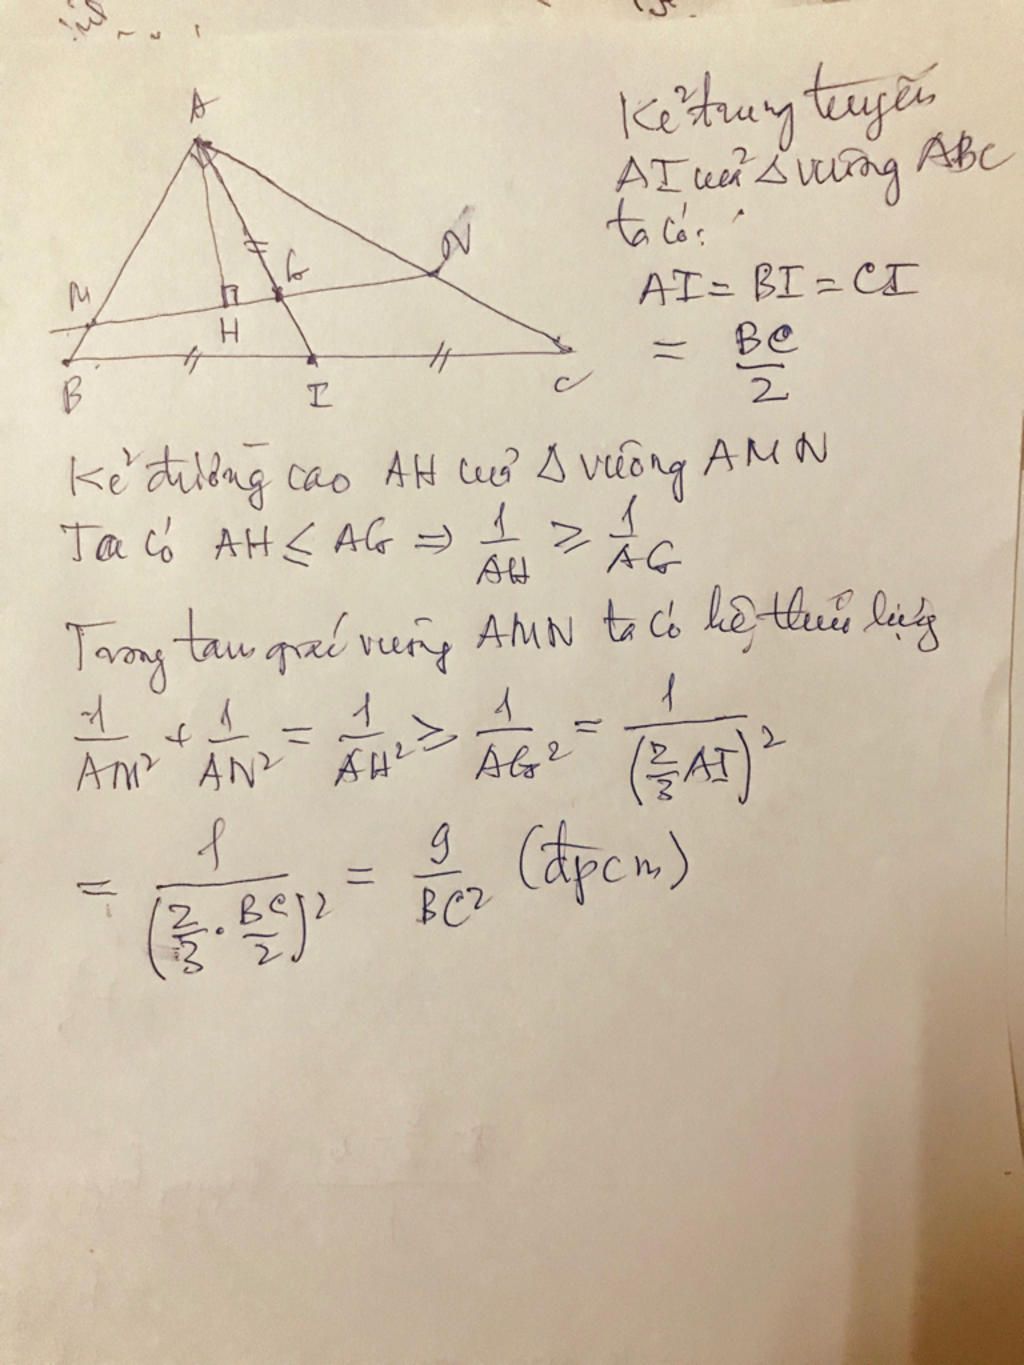 A
M
H
G
N
B
I
C
Kẻ trung tuyến
AI của Δ vuông ABC
ta có:
AI = BI = CI
= BC/2
Kẻ đường cao AH của Δ vuông AMN
Ta có AH ≤ AG ⇒ 1/AH ≥ 1/AG
Trong tam giác vuông AMN ta có hệ thức lượng
1/AM² + 1/AN² = 1/AH² ≥ 1/AG² = 1/(2/3 AI)²
= 1/(2/3 · BC/2)² = 9/BC² (đpcm)